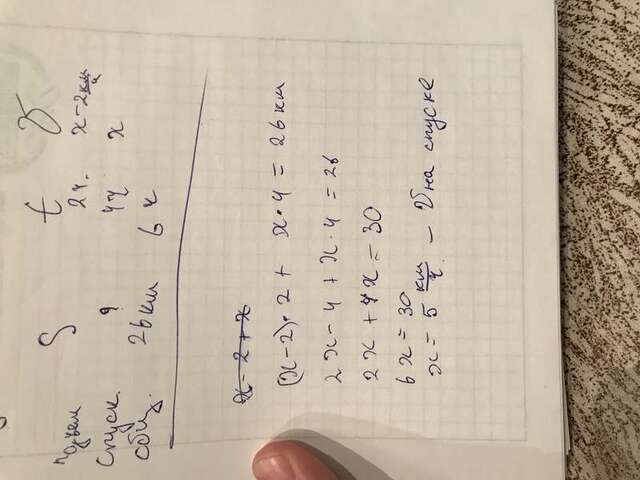 S t V
подъем 2ч. x-2 км/ч
Спуск. ? 4ч x
общ. 26км 6ч
x-2+x
(x-2)·2 + x·4 = 26 км
2x-4+x·4 = 26
2x+4x=30
6x=30
x=5 км/ч. – V на спуске